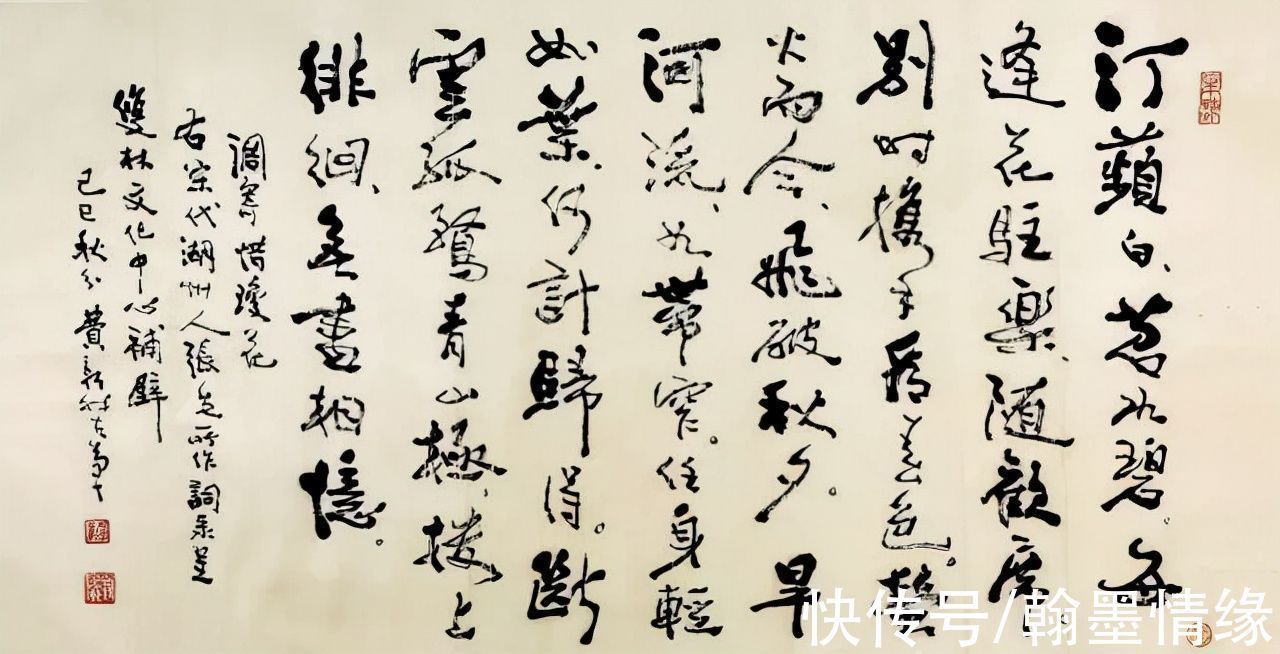 汀蘋白、苕水碧。每
逢花駐樂、隨歡席。
別時攜手看春色。螢
火而今、飛破秋夕。旱
河流、如帶窄。任身輕
如葉、何計歸得。斷
雲孤鶩青山極、樓上
徘徊、無盡相憶。
調寄惜瓊花
右宋代湖州人張先所作詞录呈
雙林文化中心補壁
己巳秋分 費新我左筆
快传号/翰墨情缘